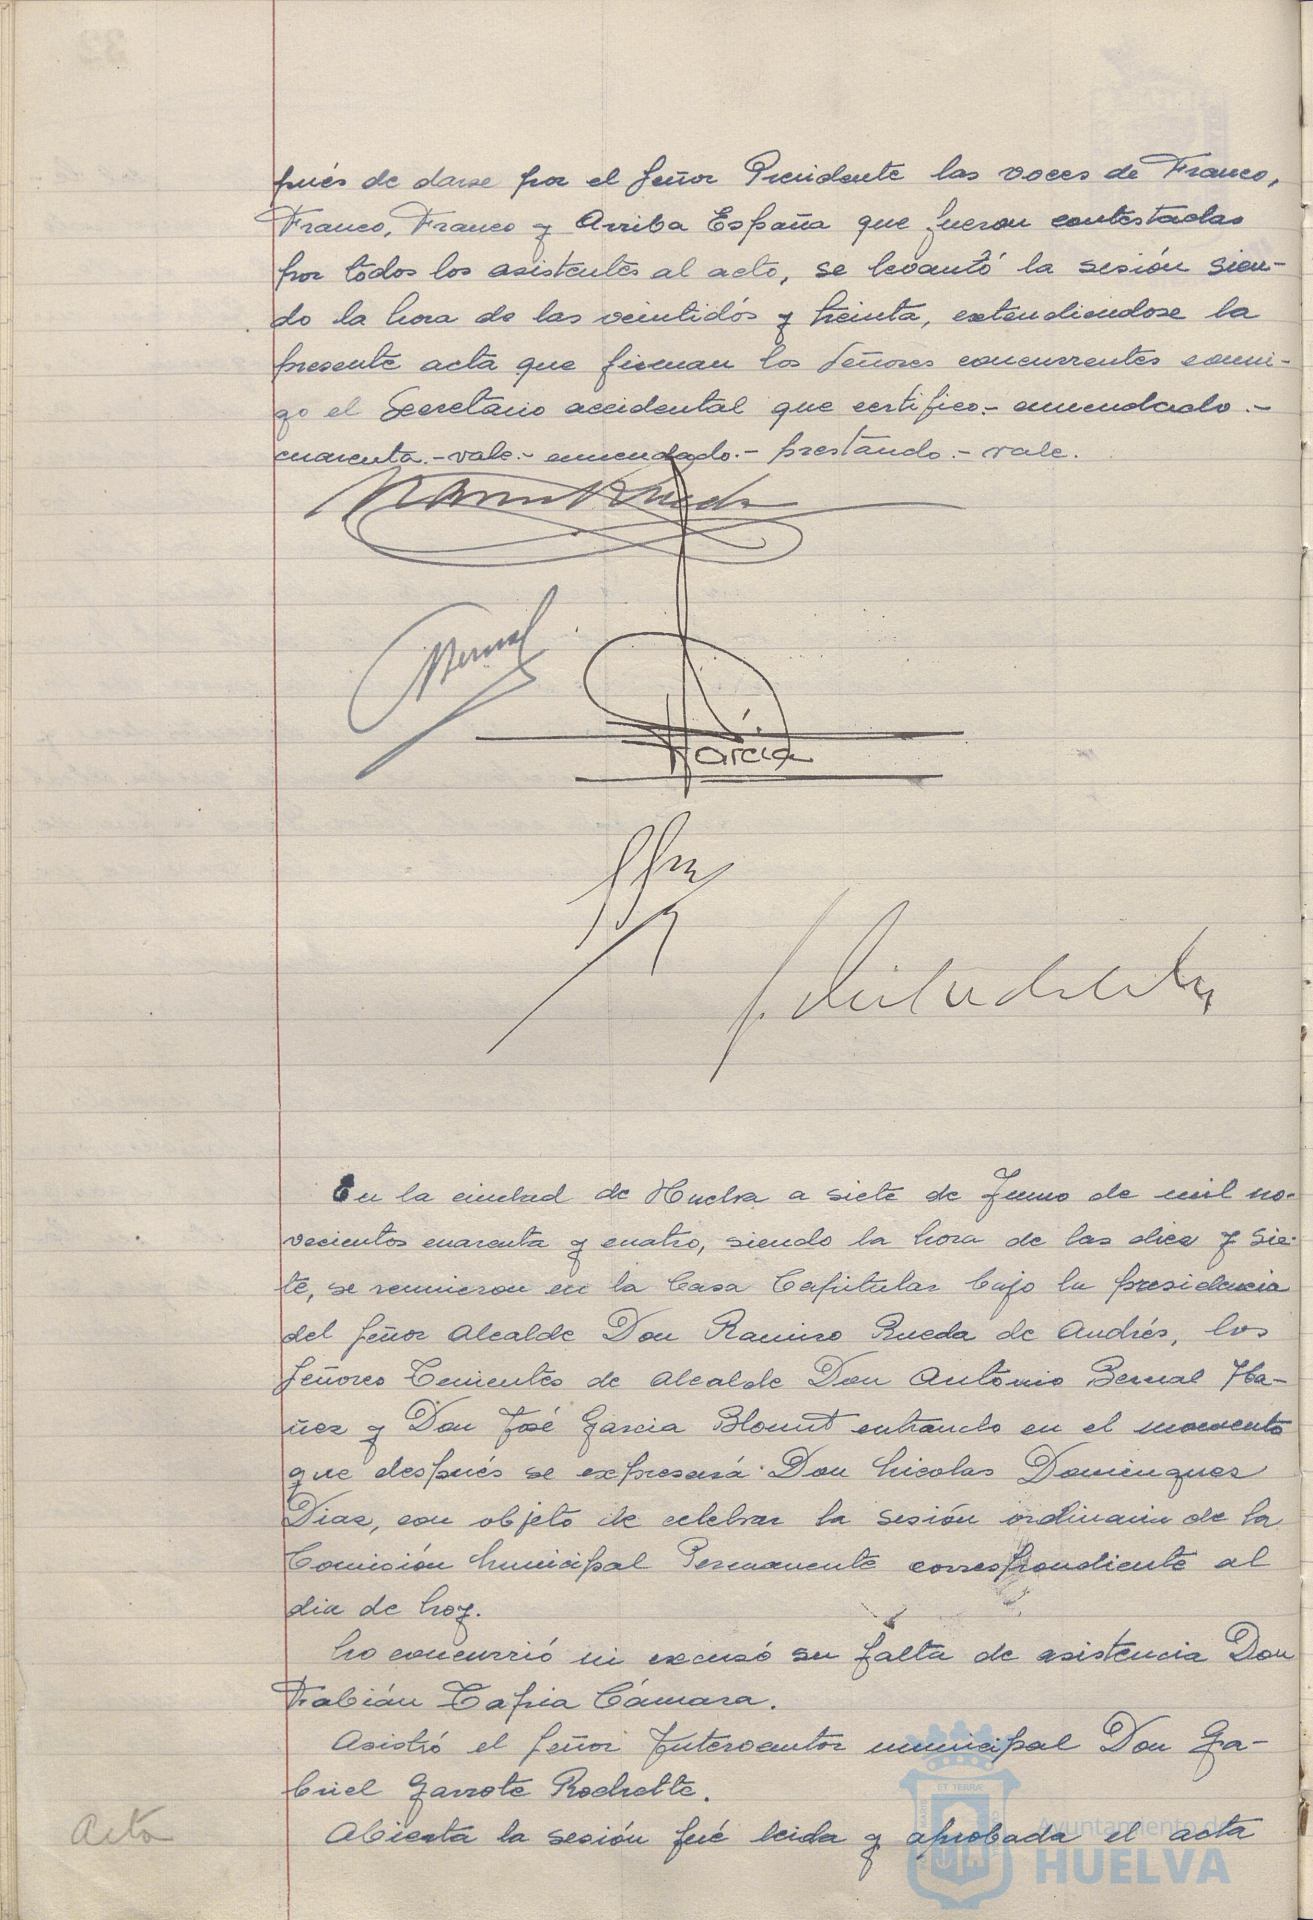 pués de darse por el Señor Presidente las voces de Franco,
Franco, Franco y Arriba España que fueron contestadas
por todos los asistentes al acto, se levantó la sesión sien-
do la hora de las veintidós y treinta, extendiendose la
presente acta que firman los Señores concurrentes conmi-
go el Secretario accidental que certifico.- enmendado.-
cuarenta.- vale.- enmendado.- prestando.- vale.
Ramiro Rueda
Bernal
García
En la ciudad de Huelva a siete de Junio de mil no-
vecientos cuarenta y cuatro, siendo la hora de las diez y sie-
te, se reunieron en la Casa Capitular bajo la presidencia
del Señor Alcalde Don Ramiro Rueda de Andrés, los
Señores Tenientes de Alcalde Don Antonio Bernal Iba-
ñez y Don José Garcia Blount entrando en el momento
que después se expresará Don Nicolas Dominguez
Diaz, con objeto de celebrar la sesión ordinaria de la
Comisión Municipal Permanente correspondiente al
dia de hoy.
No concurrió ni excusó su falta de asistencia Don
Fabián Tapia Cámara.
Asistió el Señor Interventor municipal Don Ga-
briel Garrote Rochette.
Acta
Abierta la sesión fué leida y aprobada el acta
ET TERRÆ
Ayuntamiento de
HUELVA